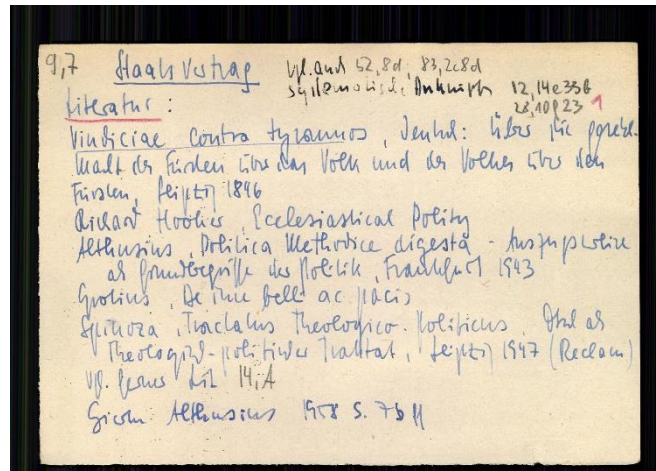 9,7 Staatsvertrag vgl. auch 52,8d; 83,2c8d
systematische Anknüpfg 12,14e35b
28,10g23 1
Literatur:
Vindiciae contra tyrannos, deutsch: Über die gesetzl.
Macht des Fürsten über das Volk und des Volkes über den
Fürsten, Leipzig 1846
Richard Hooker, Ecclesiastical Polity
Althusius, Politica Methodice digesta - Auszugsweise
als Grundbegriffe der Politik, Frankfurt 1943
Grotius, De iure belli ac pacis
Spinoza, Tractatus Theologico-Politicus, Dtsch als
Theologisch-politischer Traktat, Leipzig 1947 (Reclam)
vgl. ferner Lit 14,A
Gierke Althusius 1958 S. 76 ff